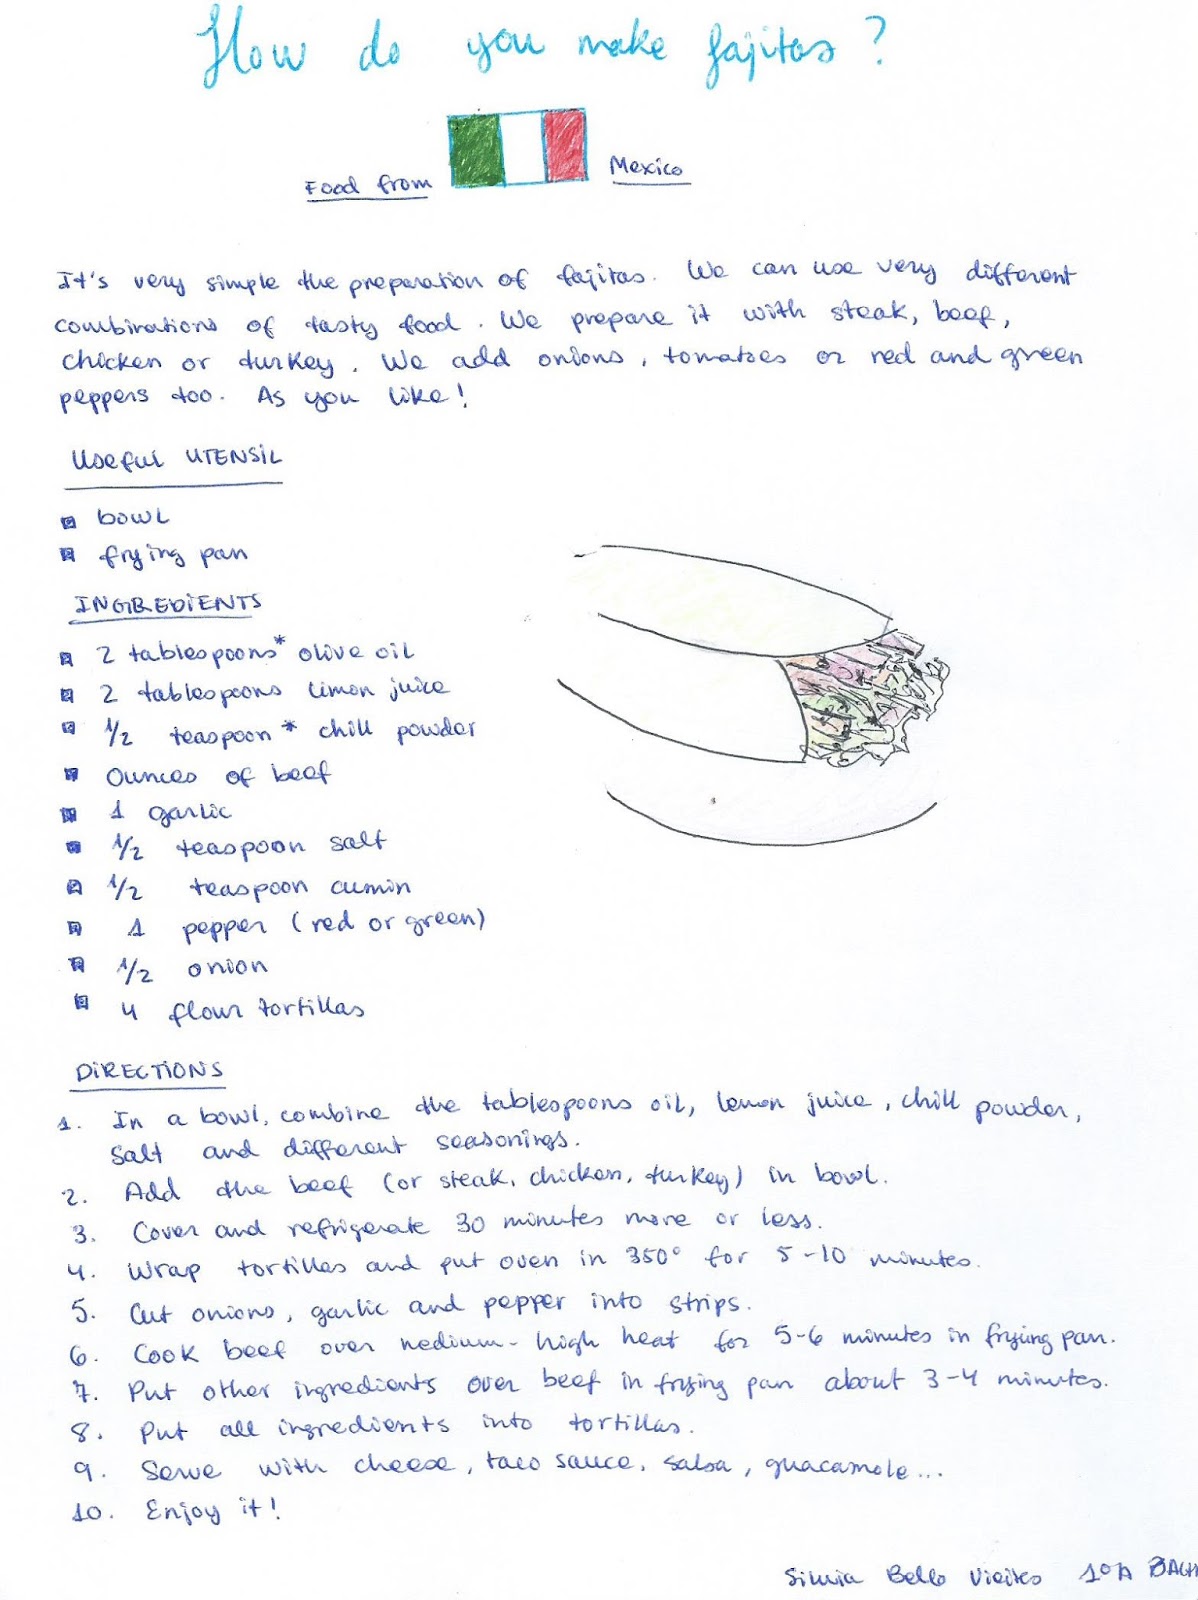 How do you make fajitas?
Food from Mexico
It's very simple the preparation of fajitas. We can use very different
combinations of tasty food. We prepare it with steak, beef,
chicken or turkey. We add onions, tomatoes or red and green
peppers too. As you like!
Useful UTENSIL
bowl
frying pan
INGREDIENTS
2 tablespoons* olive oil
2 tablespoons limon juice
1/2 teaspoon* chill powder
ounces of beef
1 garlic
1/2 teaspoon salt
1/2 teaspoon cumin
1 pepper (red or green)
1/2 onion
4 flour tortillas
DIRECTIONS
1. In a bowl, combine the tablespoons oil, lemon juice, chill powder,
salt and different seasonings.
2. Add the beef (or steak, chicken, turkey) in bowl.
3. Cover and refrigerate 30 minutes more or less.
4. Wrap tortillas and put oven in 350° for 5-10 minutes.
5. Cut onions, garlic and pepper into strips.
6. Cook beef over medium-high heat for 5-6 minutes in frying pan.
7. Put other ingredients over beef in frying pan about 3-4 minutes.
8. Put all ingredients into tortillas.
9. Serve with cheese, taco sauce, salsa, guacamole...
10. Enjoy it!
Silvia Bello Vieites 1ºA BACH